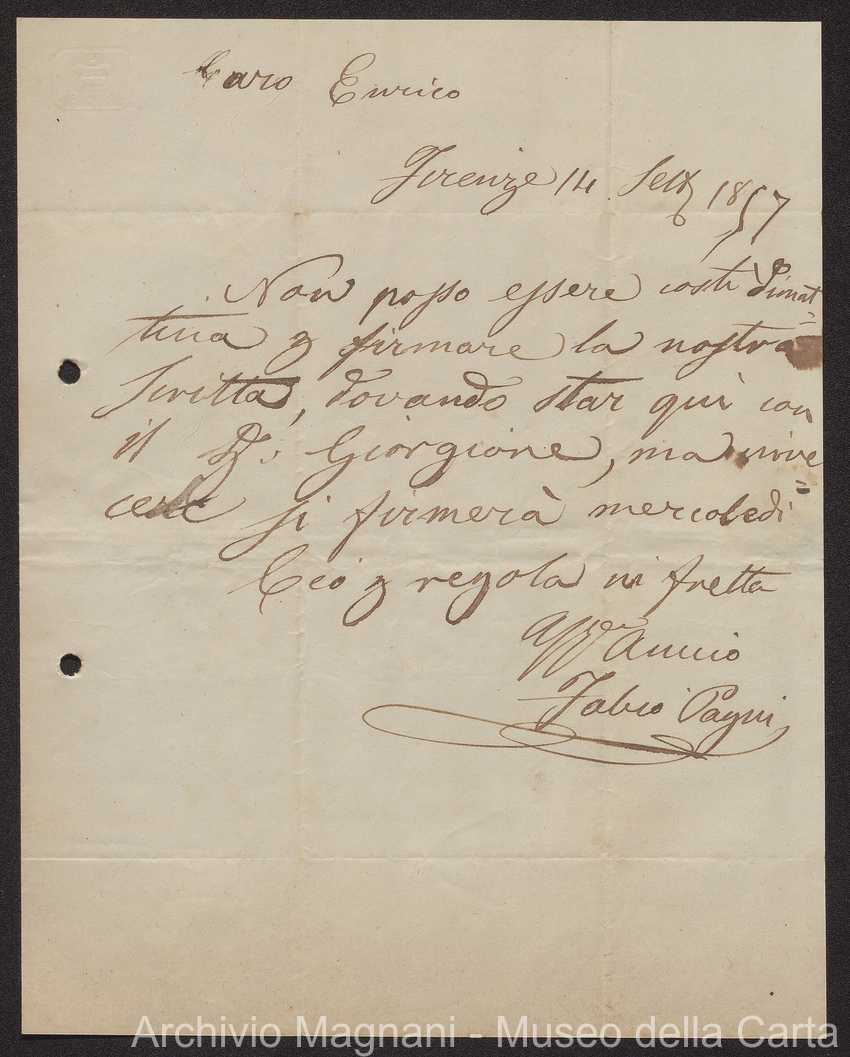 Caro Enrico
Firenze 14 Sett 1857
Non posso essere costì dimat=
tina p firmare la nostra
Scritta, dovendo star quì con
il Giorgione, ma inve=
ce si firmerà mercoledì
Ciò p regola in fretta
Aff Amico
Fabio Pagni
Archivio Magnani - Museo della Carta